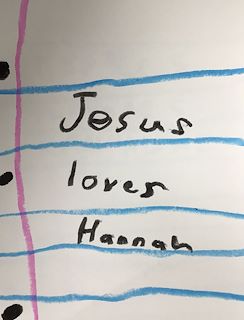 Jesus
loves
Hannah